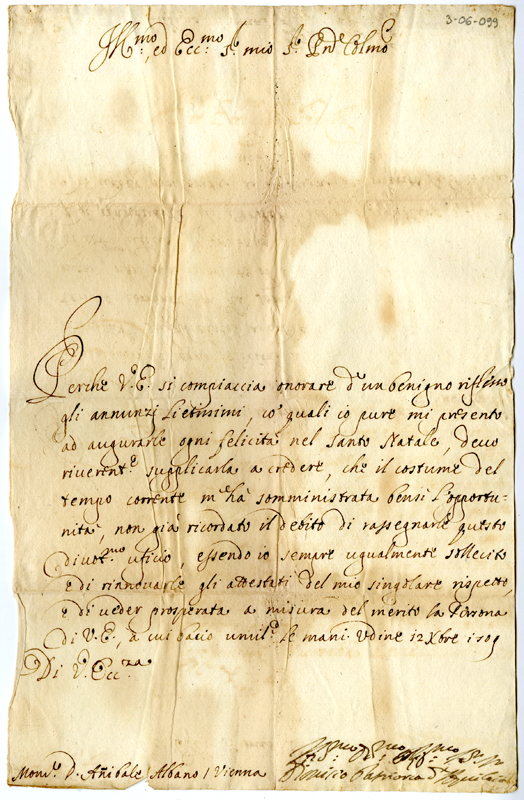 3-06-099
Ill.mo, ed Ecc.mo S.r mio S.r P.rone Colmo
Perche V.E. si compiaccia onorare d'un benigno riflesso
gli annunzj lietissimi, co' quali io pure mi presento
ad augurarle ogni felicità nel Santo Natale, devo
riverent.e supplicarla a credere, che il costume del
tempo corrente m'ha somministrata bensì l'opportu-
nità, non già ricordato il debito di rassegnarle questo
divot.mo uficio, essendo io sempre ugualmente sollecito
e di rinnovarle gli attestati del mio singolare rispetto,
e di veder prosperata a misura del merito la Persona
di V.E., a cui bacio umil.e le mani. Udine 12 Xbre 1709
Di V. Ecc.za
Dionisio Patriarca d'Aquileia
Mons.r D. Añibale Albano / Vienna